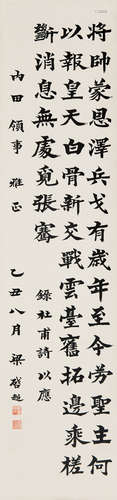 將帥蒙恩澤兵戈有歲年至今勞聖主何
以報皇天白骨新交戰雲臺舊拓邊乘槎
斷消息無處覓張騫 錄杜甫詩以應
內田領事 雅正 乙丑八月 梁啟超